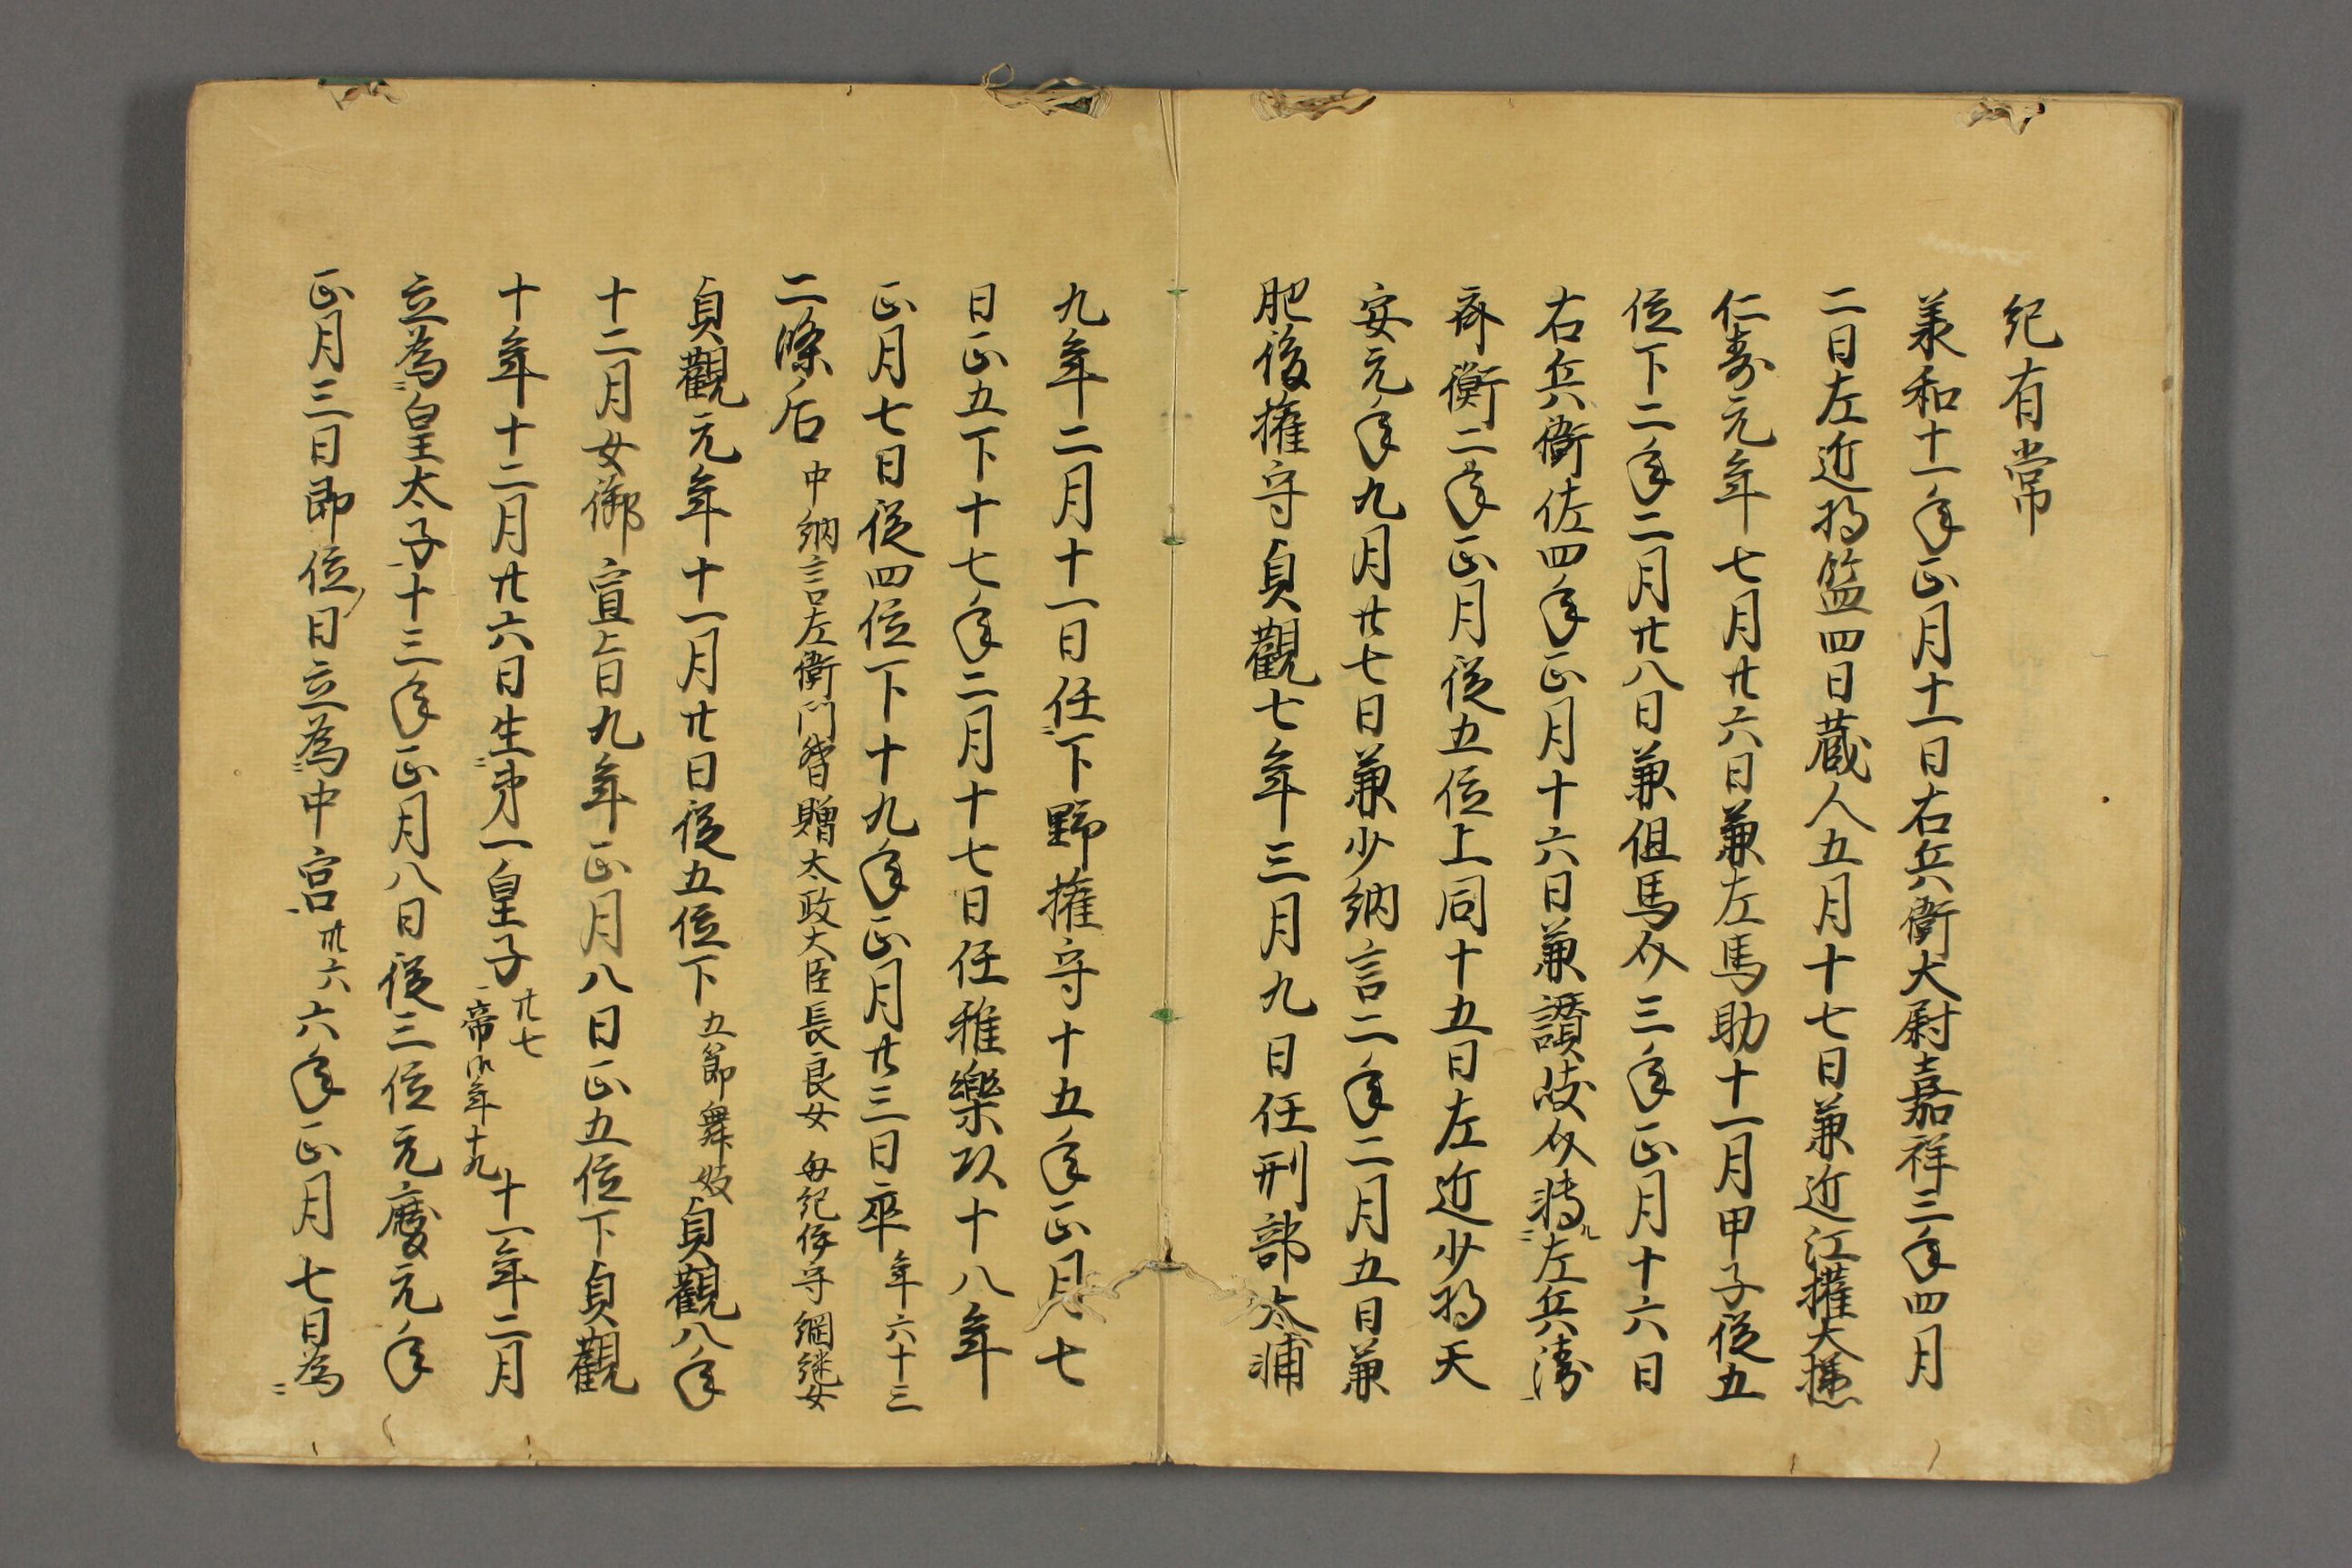 紀有常
承和十一年正月十一日右兵衛大尉嘉祥三年四月
二日左近将監四日蔵人五月十七日兼近江権大掾
仁寿元年七月廿六日兼左馬助十一月甲子従五
位下二年二月廿八日兼但馬介三年正月十六日
右兵衛佐四年正月十六日兼讃岐介将左兵
斉衡二年正月従五位上同十五日左近少将天
安元年九月廿七日兼少納言二年二月五日兼
肥後権守貞觀七年三月九日任刑部太輔
九年二月十一日任下野権守十五年正月七
日正五下十七年二月十七日任雅樂頭十八年
正月七日従四位下十九年正月廿三日卒年六十三
二條后 中納言左衛門督贈太政大臣長良女 母紀伊守綱継女
貞觀元年十一月廿日従五位下五節舞妓貞觀八年
十二月女御宣旨九年正月八日正五位下貞觀
十年十二月廿六日生第一皇子廿七 帝御年十九十一年二月
立為皇太子十三年正月八日従三位元慶元年
正月三日即位日立為中宮卅六六年正月七日為